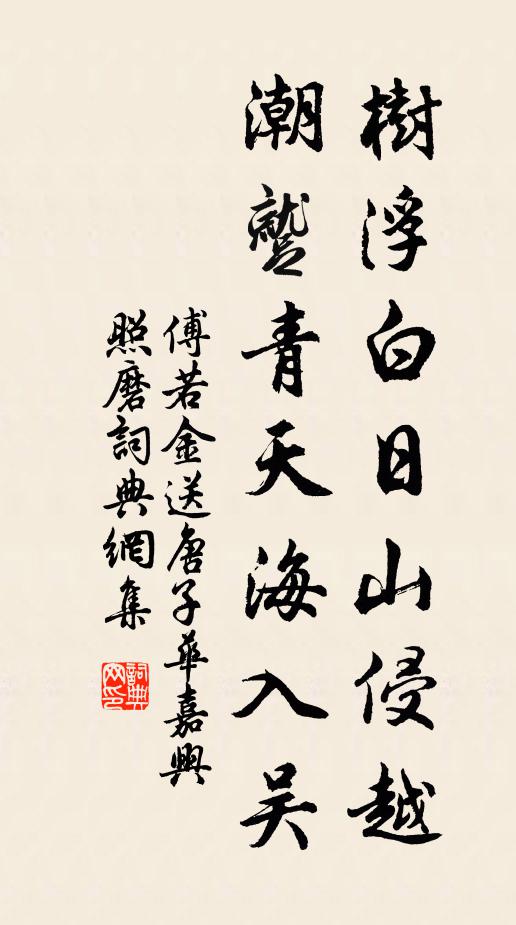 樹浮白日山侵越
潮蹵青天海入吴
傅若金送唐子華嘉興
照磨詞典網集
詞典
网印